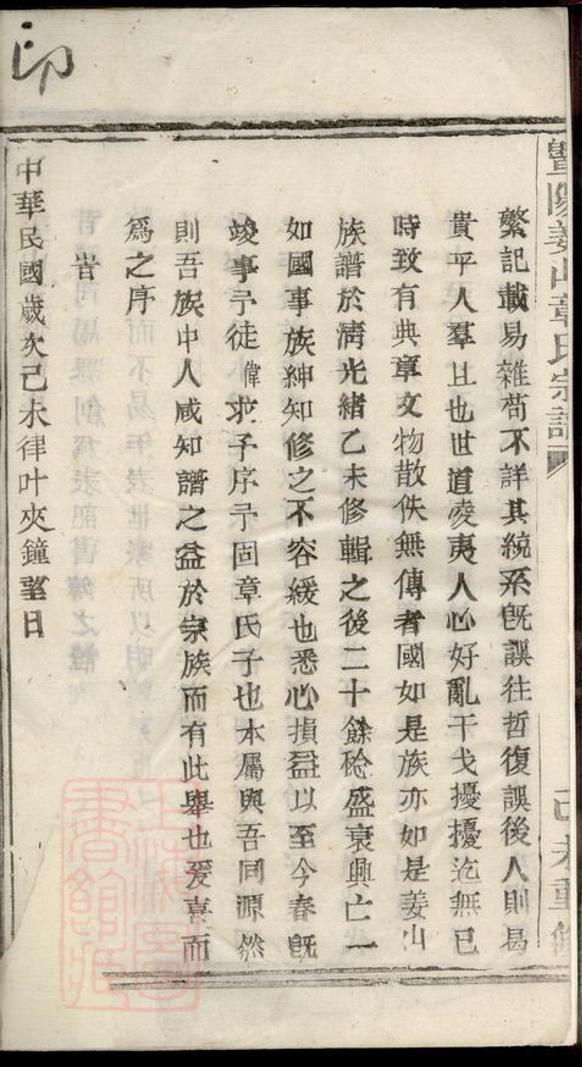 暨陽姜山章氏宗譜
己未重修
繁記載易雜苟不詳其統系旣誤往哲復誤後人則曷
貴乎人羣且也世道凌夷人心好亂干戈擾擾迄無已
時致有典章文物散佚無傳者國如是族亦如是姜山
族譜於清光緒乙未修輯之後二十餘稔盛衰興亡一
如國事族紳知修之不容緩也悉心損益以至今春旣
竣事予徒偉求予序予固章氏子也本屬與吾同源然
則吾族中人咸知譜之益於宗族而有此舉也爰喜而
爲之序
旹
中華民國歲次己未律叶夾鐘望日
印